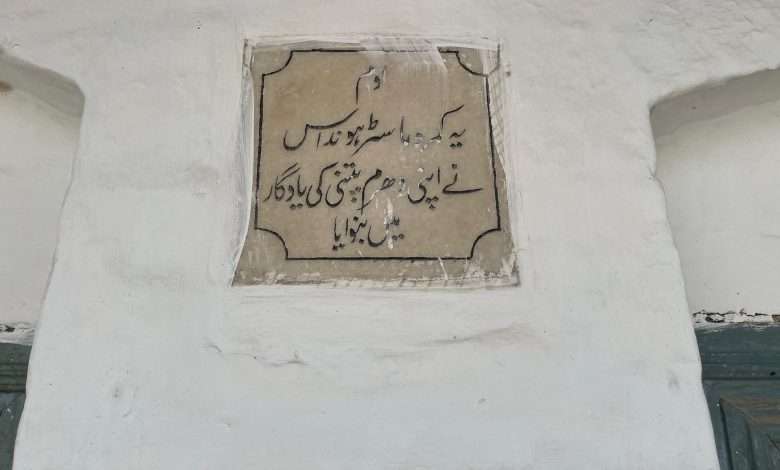 اوم
یہ کمرہ ماسٹر ہونداس
نے اپنی دھرم پتنی کی یادگار
میں بنوایا